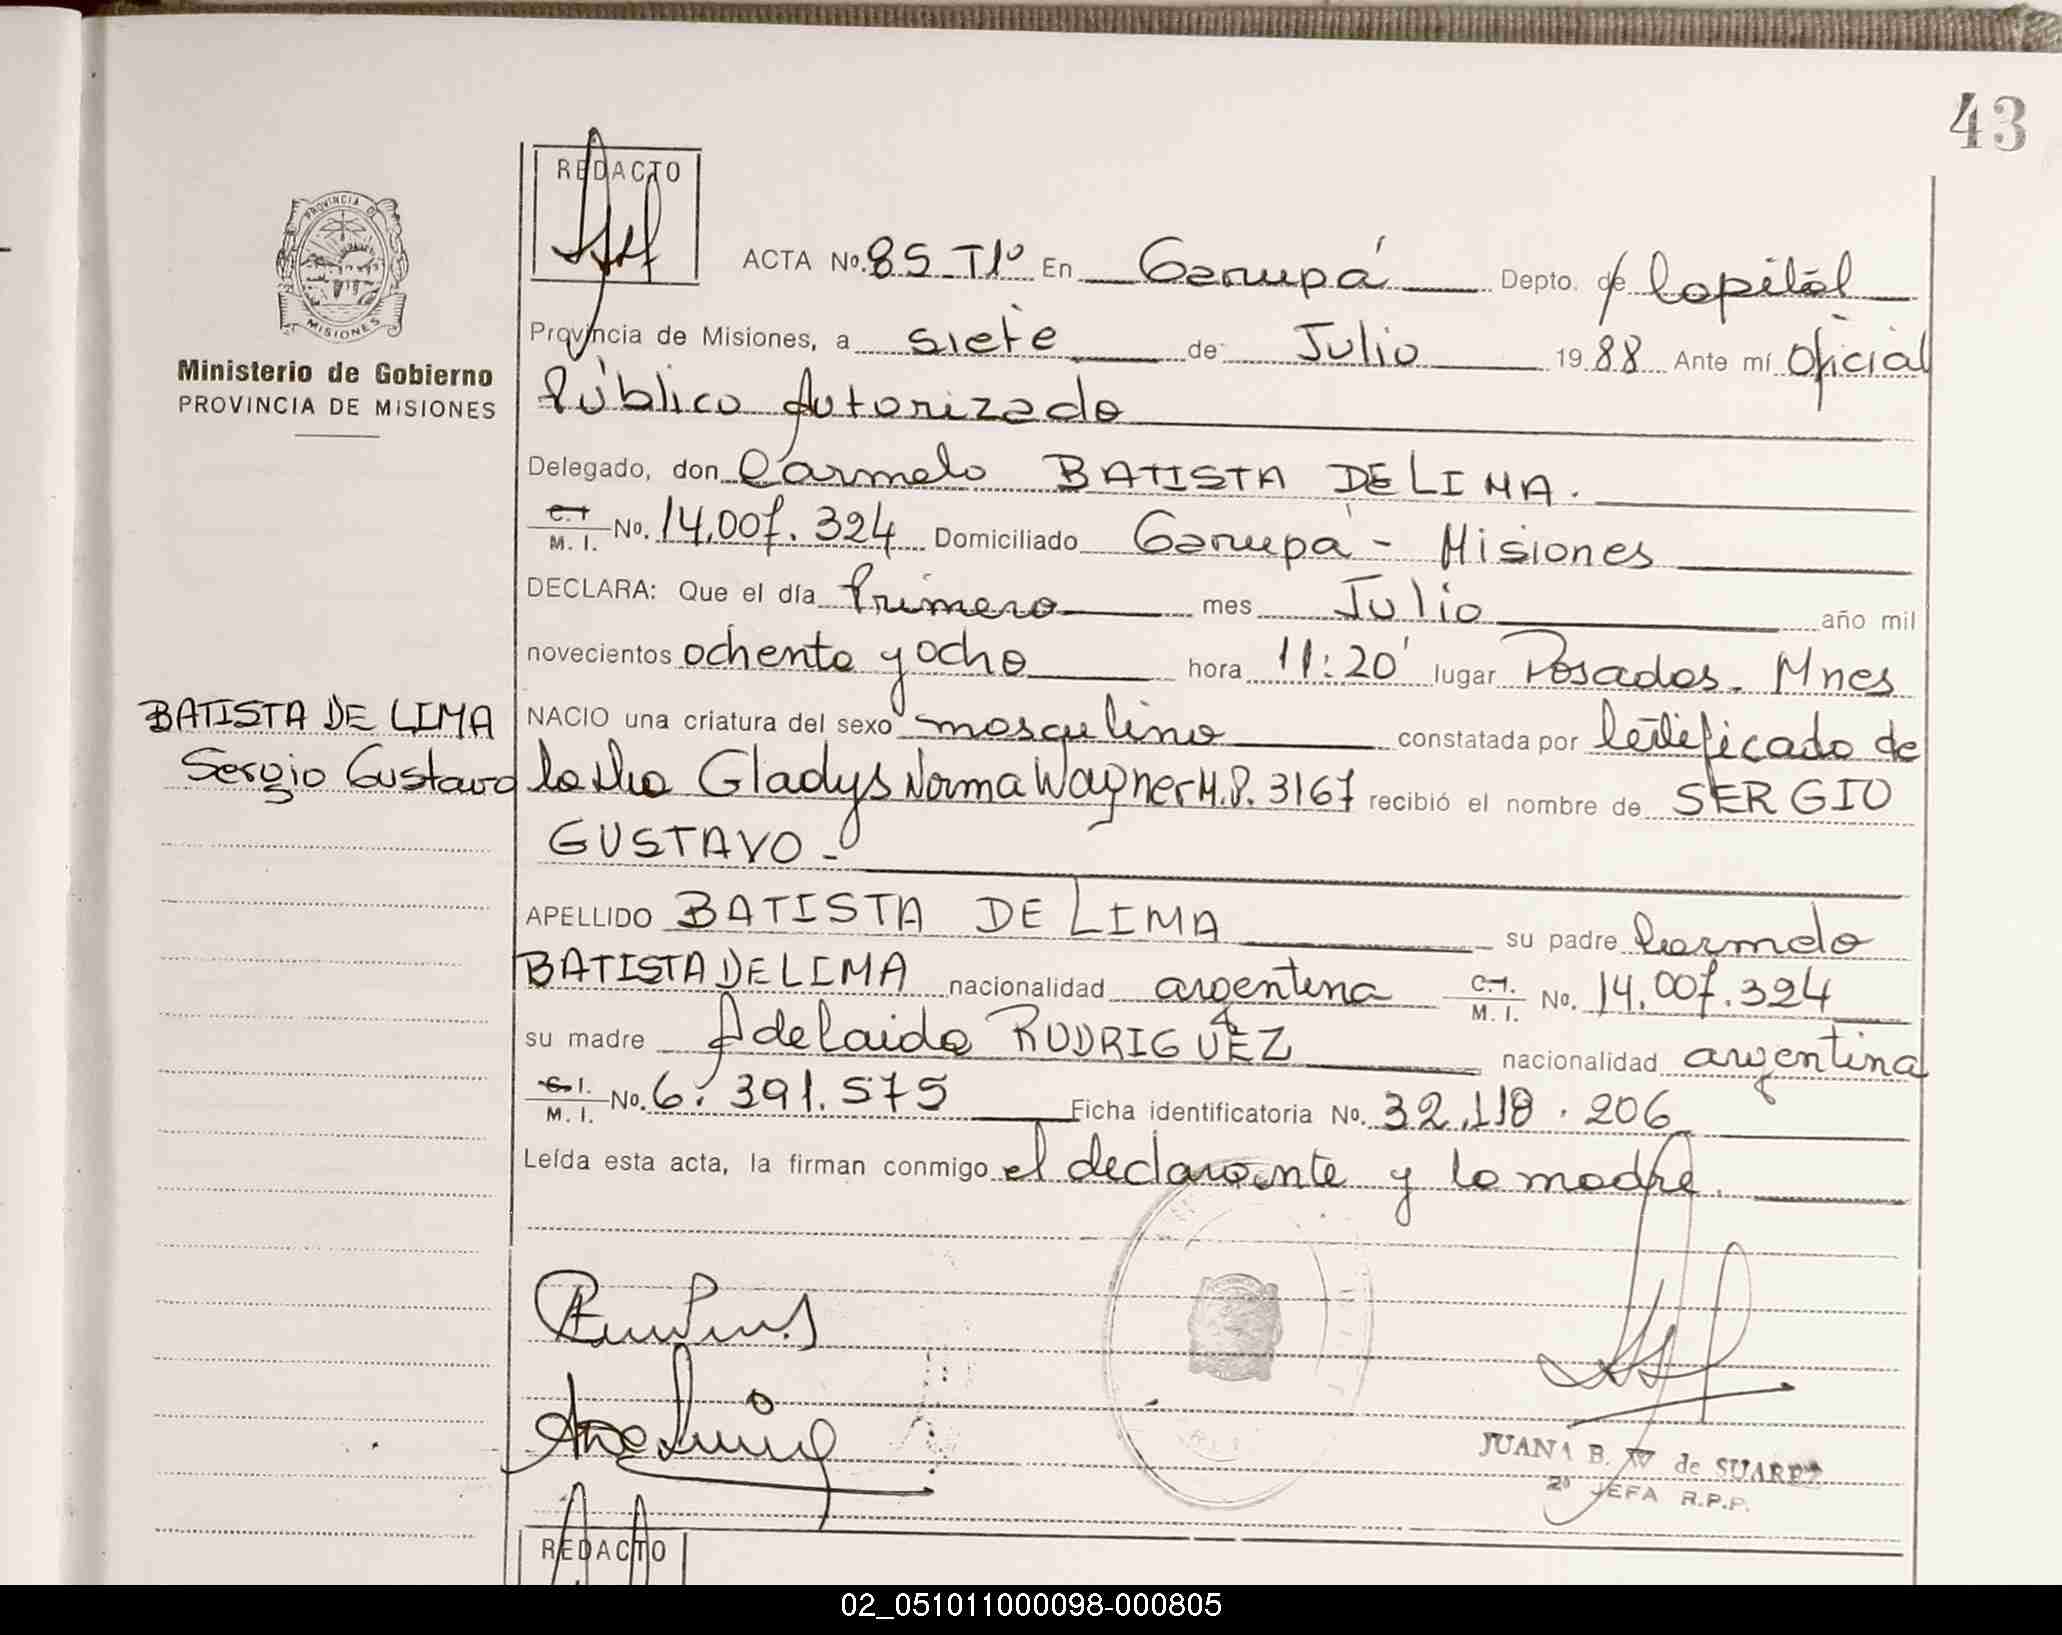 43
REDACTO
PROVINCIA DE
MISIONES
Ministerio de Gobierno
PROVINCIA DE MISIONES
ACTA No. 85 T1º En Garupá Depto. de Capital
Provincia de Misiones, a siete de Julio 1988 Ante mí Oficial
Público Autorizado
Delegado, don Carmelo BATISTA DE LIMA.
C.I M. I. No. 14.007.324 Domiciliado Garupá - Misiones
DECLARA: Que el día Primero mes Julio año mil
novecientos ochenta y ocho hora 11:20' lugar Posadas. Mnes
BATISTA DE LIMA
Sergio Gustavo
NACIO una criatura del sexo masculino constatada por Certificado de
la Dra Gladys Norma Wagner M.P. 3167 recibió el nombre de SERGIO
GUSTAVO -
APELLIDO BATISTA DE LIMA su padre Carmelo
BATISTA DE LIMA nacionalidad argentina C.I. M. I. No. 14.007.324
su madre Adelaida RODRIGUEZ nacionalidad argentina
C.I. M. I. No. 6.391.575 Ficha identificatoria No. 32.118.206
Leída esta acta, la firman conmigo el declarante y la madre.
JUANA B. W de SUAREZ
2º JEFA R.P.P.
REDACTO
02_051011000098-000805